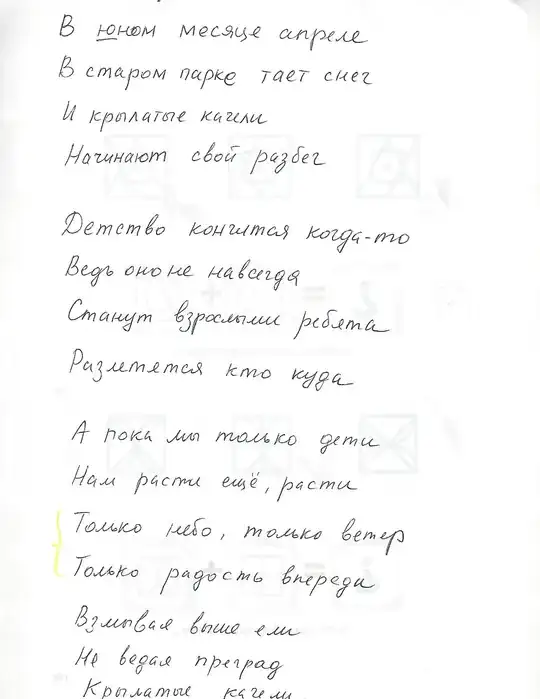 В юном месяце апреле
В старом парке тает снег
И крылатые качели
Начинают свой разбег
Детство кончится когда-то
Ведь оно не навсегда
Станут взрослыми ребята
Разлетятся кто куда
А пока мы только дети
Нам расти ещё, расти
Только небо, только ветер
Только радость впереди
Взмывая выше ели
Не ведая преград
Крылатые качели